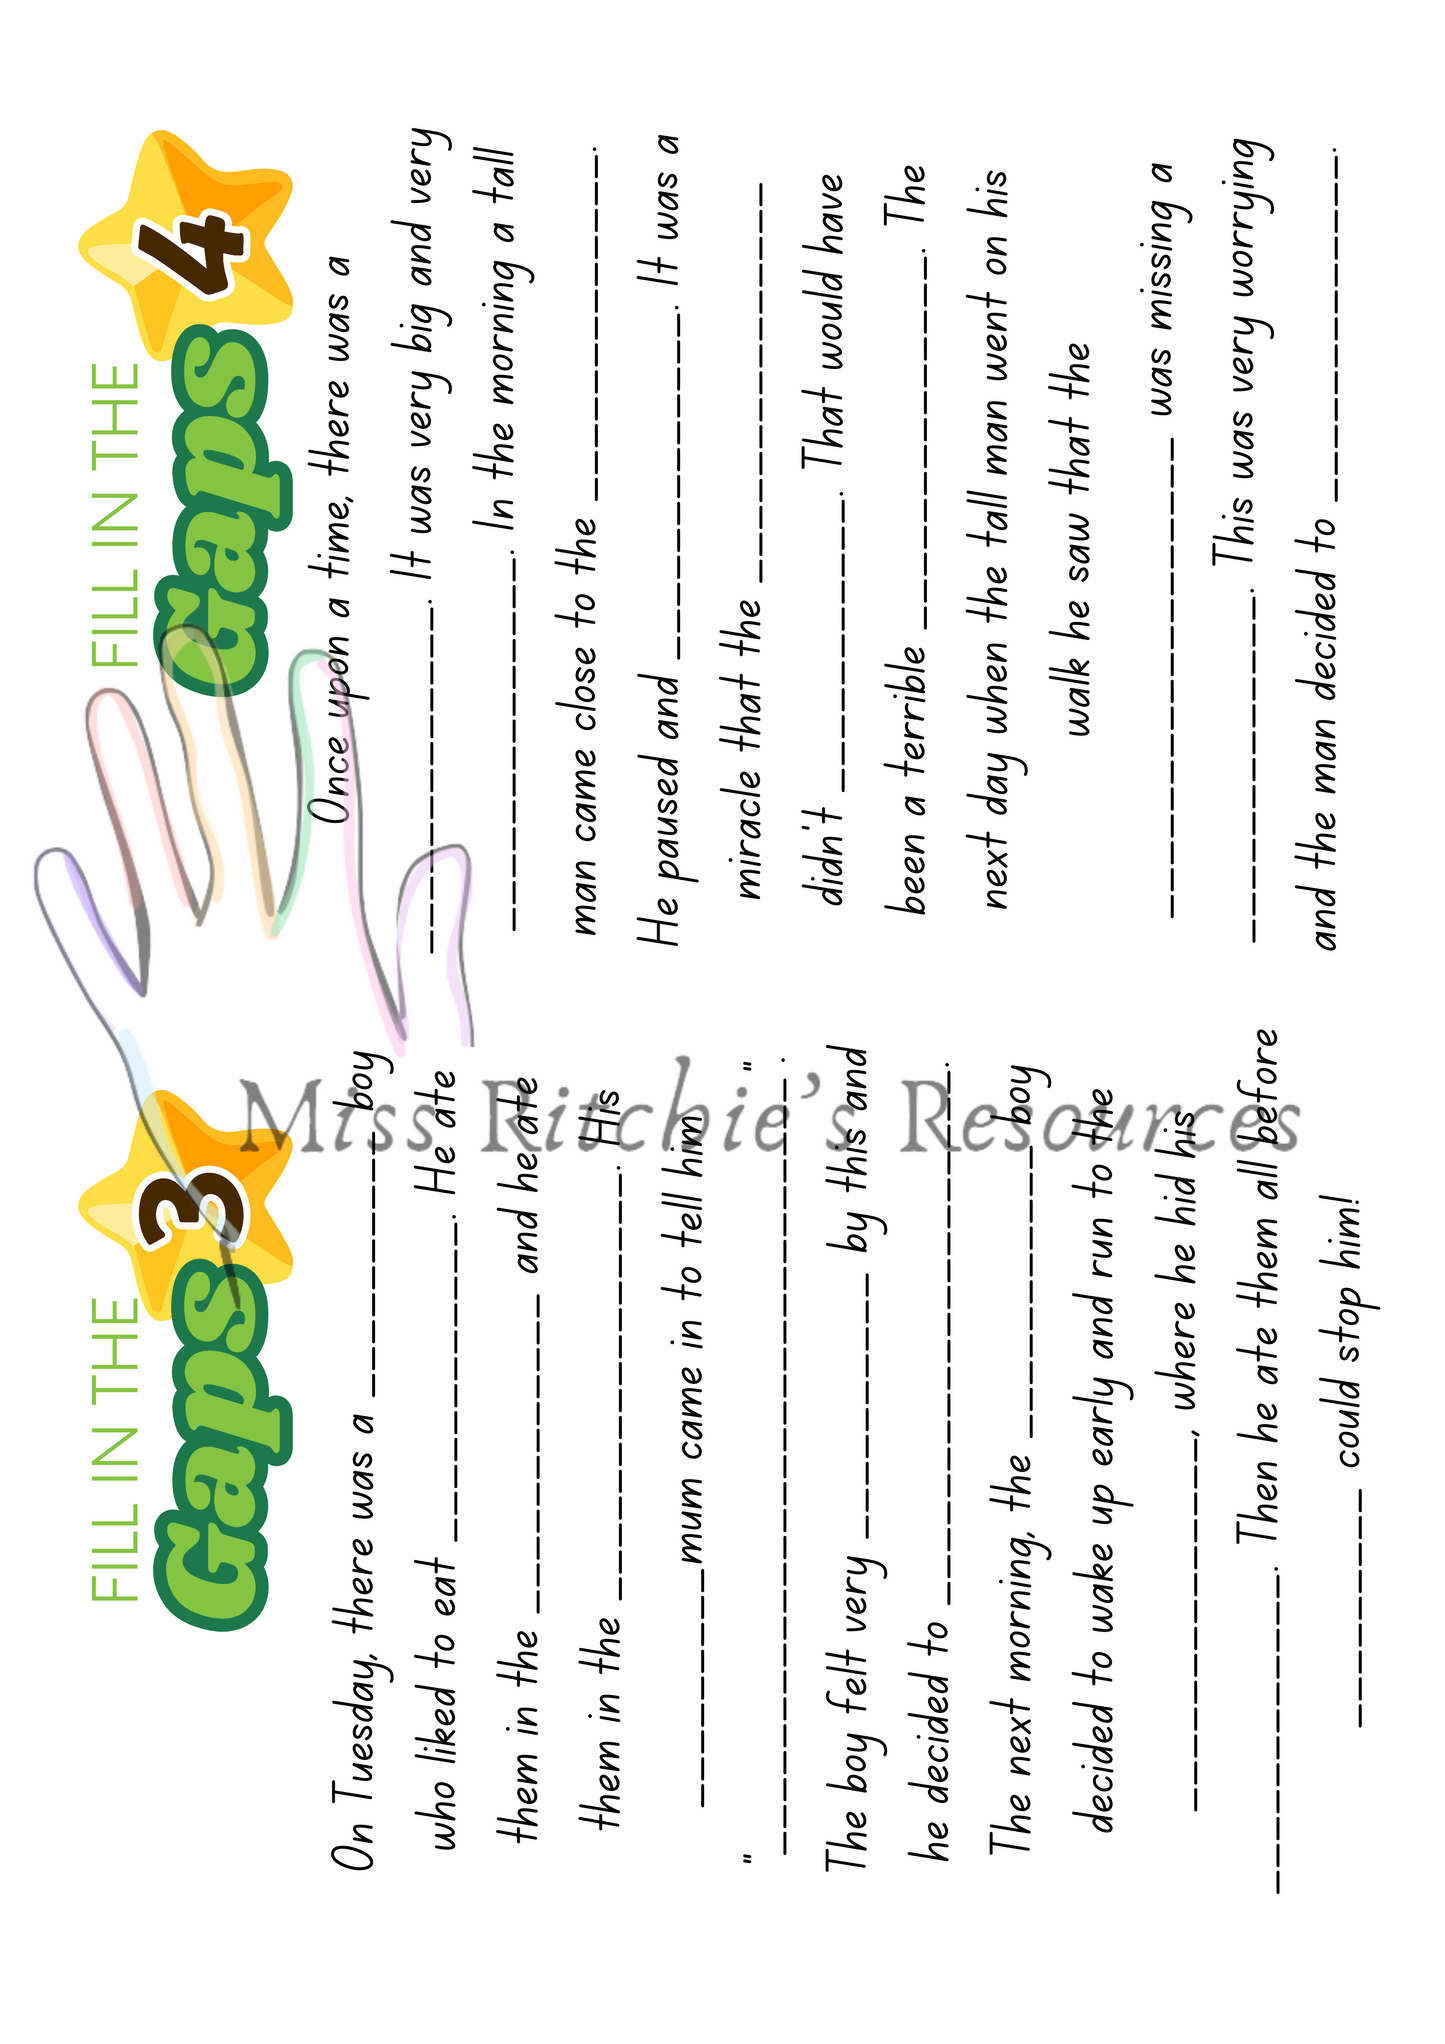 FILL IN THE
Gaps
3
On Tuesday, there was a ____________ boy
who liked to eat ____________. He ate
them in the ____________ and he ate
them in the ____________. His
____________ mum came in to tell him
" "
____________.
The boy felt very ____________ by this and
he decided to ____________.
The next morning, the ____________ boy
decided to wake up early and run to the
____________, where he hid his
____________. Then he ate them all before
____________ could stop him!
FILL IN THE
Gaps
4
Once upon a time, there was a
____________. It was very big and very
____________. In the morning a tall
man came close to the ____________.
He paused and ____________. It was a
miracle that the ____________
didn't ____________. That would have
been a terrible ____________. The
next day when the tall man went on his
walk he saw that the
____________ was missing a
____________. This was very worrying
and the man decided to ____________.
Miss Ritchie's Resources